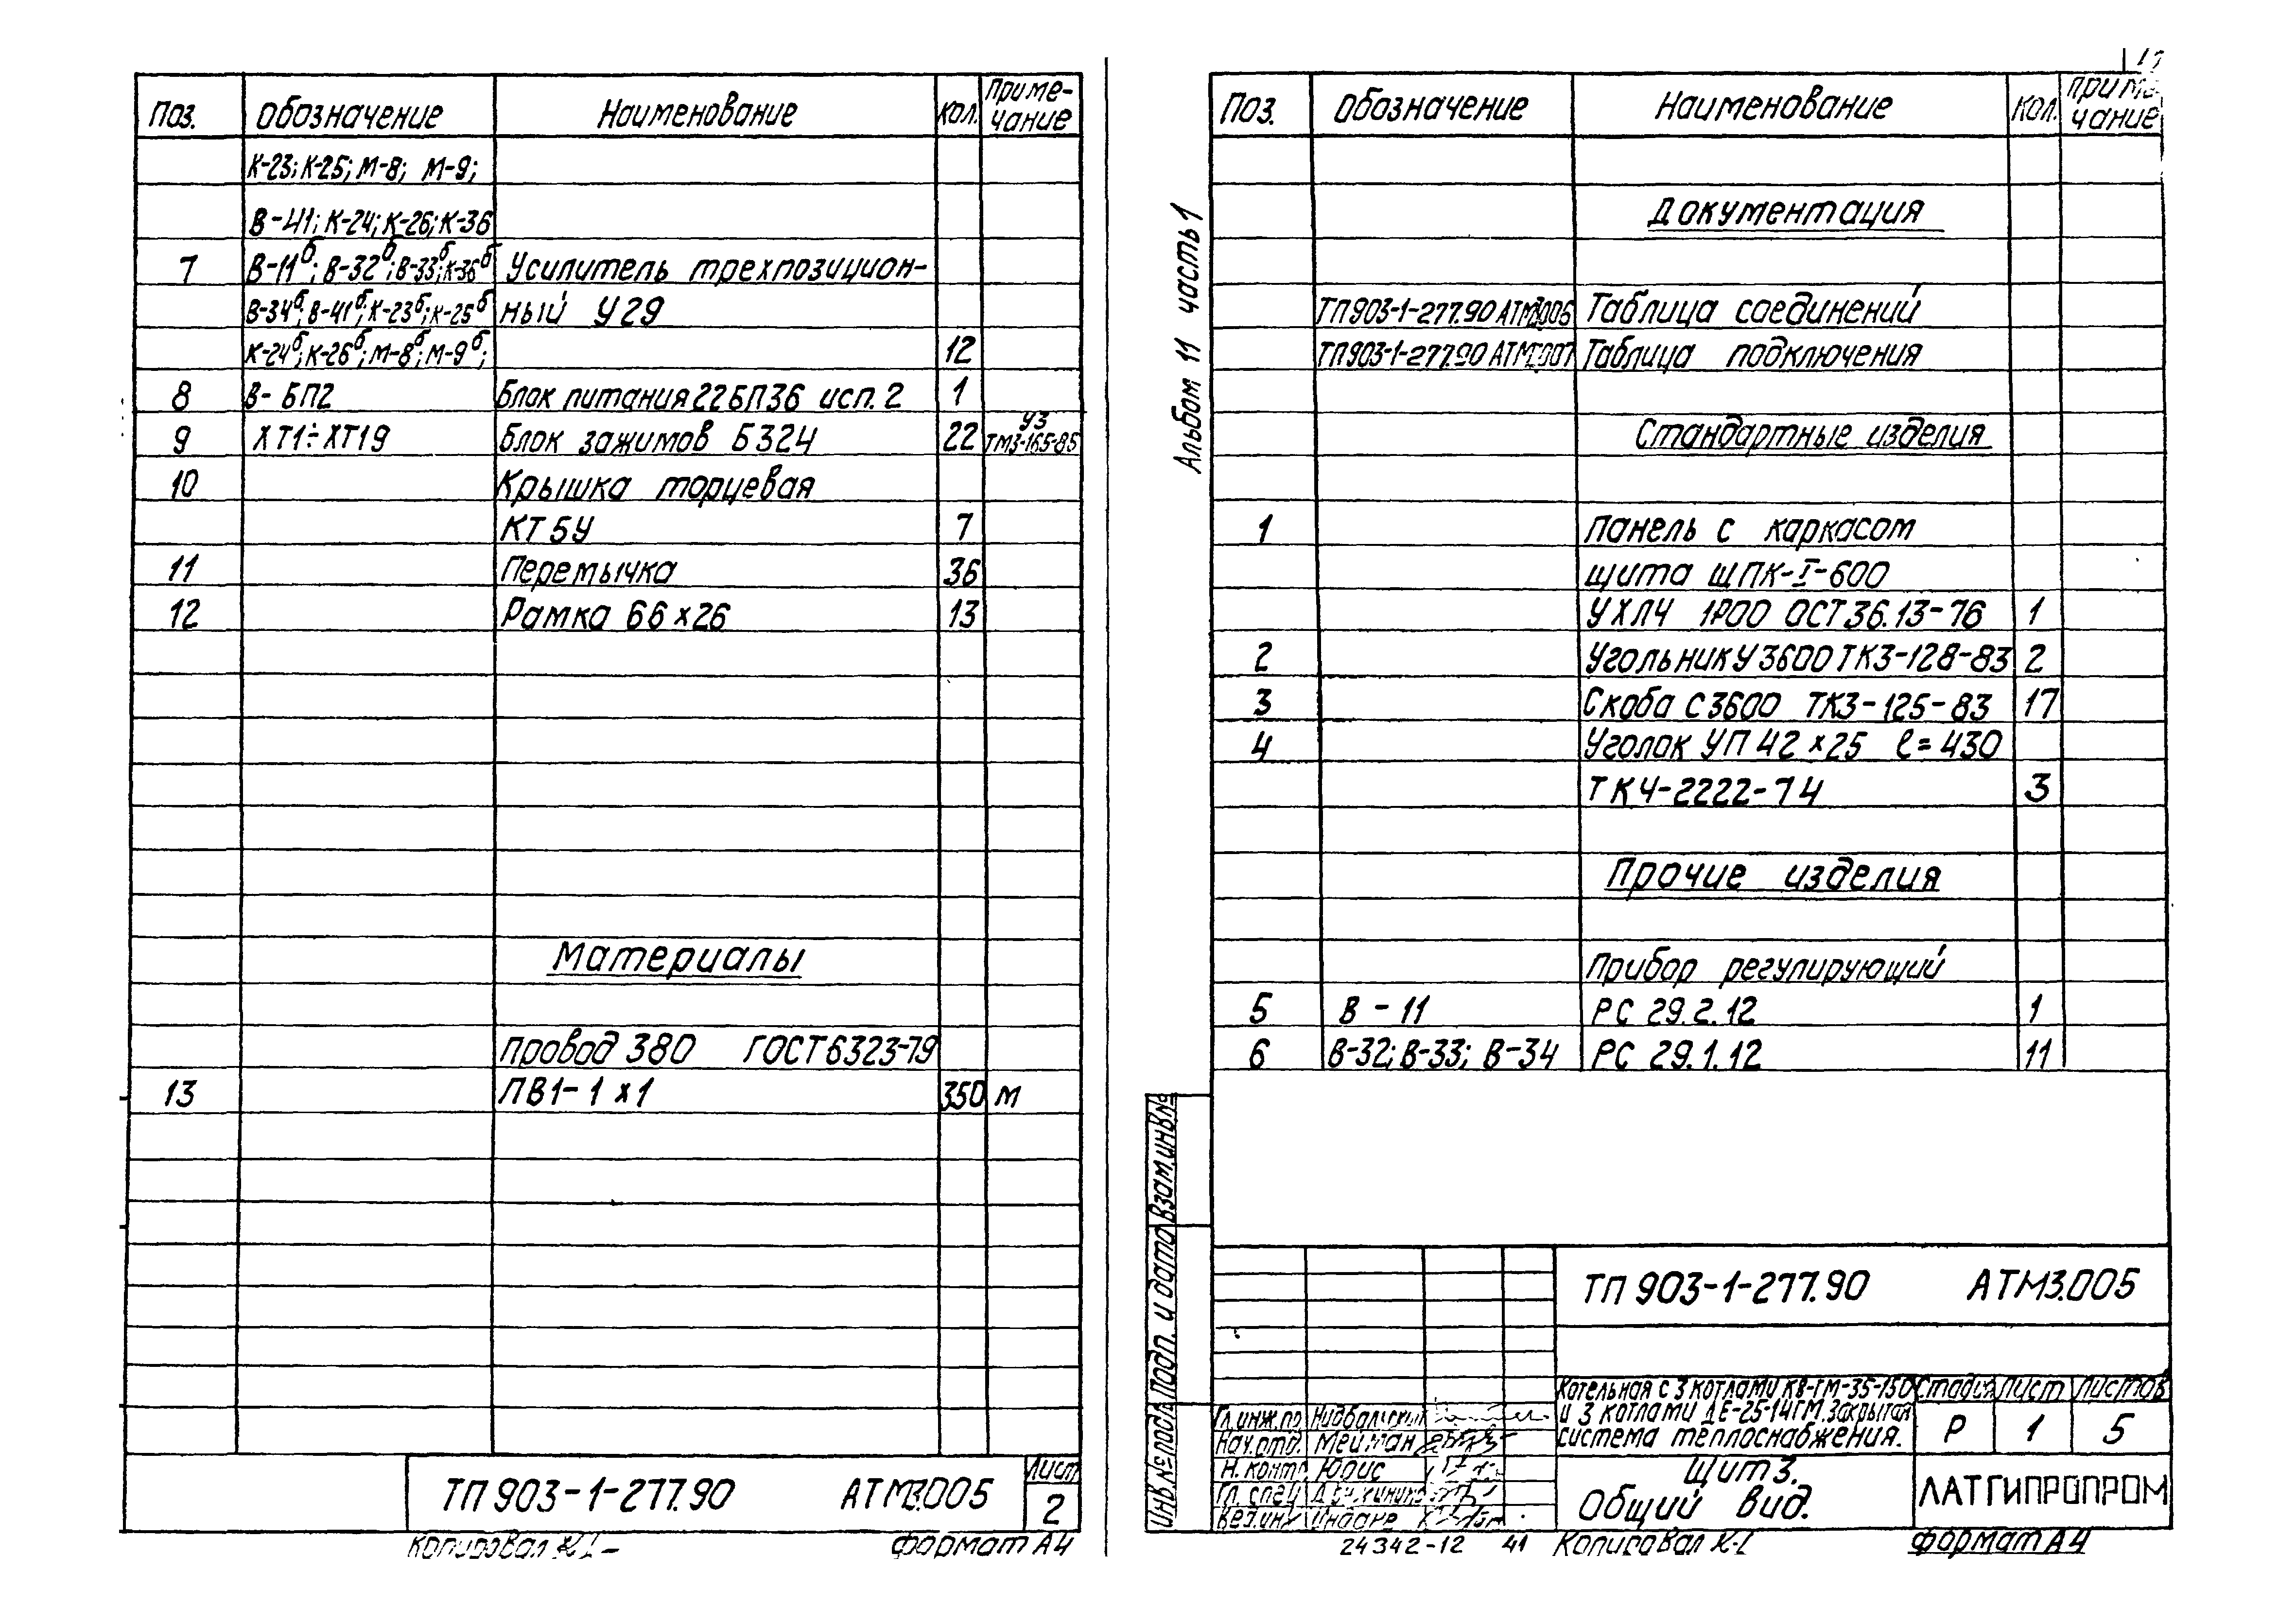 Поз. Обозначение Наименование Кол. Приме-
чание
К-23; К-25; М-8; М-9;
В-41; К-24; К-26; К-36
7 В-11б; В-32б; В-33б; К-36б Усилитель трехпозицион-
В-34б; В-41б; К-23б; К-25б ный У29
К-24б; К-26б; М-8б; М-9б; 12
8 В-БП2 Блок питания 22БП36 исп. 2 1
9 ХТ1÷ХТ19 Блок зажимов Б324 22 У3
ТМ3-165-85
10 Крышка торцевая
КТ5У 7
11 Перемычка 36
12 Рамка 66х26 13
Материалы
Провод 380 ГОСТ 6323-79
13 ПВ1-1х1 350 м
ТП 903-1-277.90 АТМ3.005
Лист
2
Копировал
Формат А4
Альбом 11 часть 1
Поз. Обозначение Наименование Кол. Приме-
чание
Документация
ТП903-1-277.90 АТМ3.006 Таблица соединений
ТП903-1-277.90 АТМ3.007 Таблица подключения
Стандартные изделия
1 Панель с каркасом
щита ЩПК-I-600
УХЛ4 1Р00 ОСТ 36.13-76 1
2 Угольник У3600 ТК3-128-83 2
3 Скоба С3600 ТК3-125-83 17
4 Уголок УП 42х25 ℓ=430
ТК4-2222-74 3
Прочие изделия
Прибор регулирующий
5 В-11 РС 29.2.12 1
6 В-32; В-33; В-34 РС 29.1.12 11
Взам.инв.№
Подп. и дата
Инв.№ подл.
ТП 903-1-277.90 АТМ3.005
Котельная с 3 котлами КВ-ГМ-35-150
и 3 котлами ДЕ-25-14ГМ. Закрытая
система теплоснабжения.
Стадия Лист Листов
Р 1 5
Гл.инж.пр.
Нач.отд. Мейман
Н. контр. Юдис
Гл. спец.
Вед.инж.
Щит 3.
Общий вид.
ЛАТГИПРОПРОМ
24342-12 41 Копировал
Формат А4